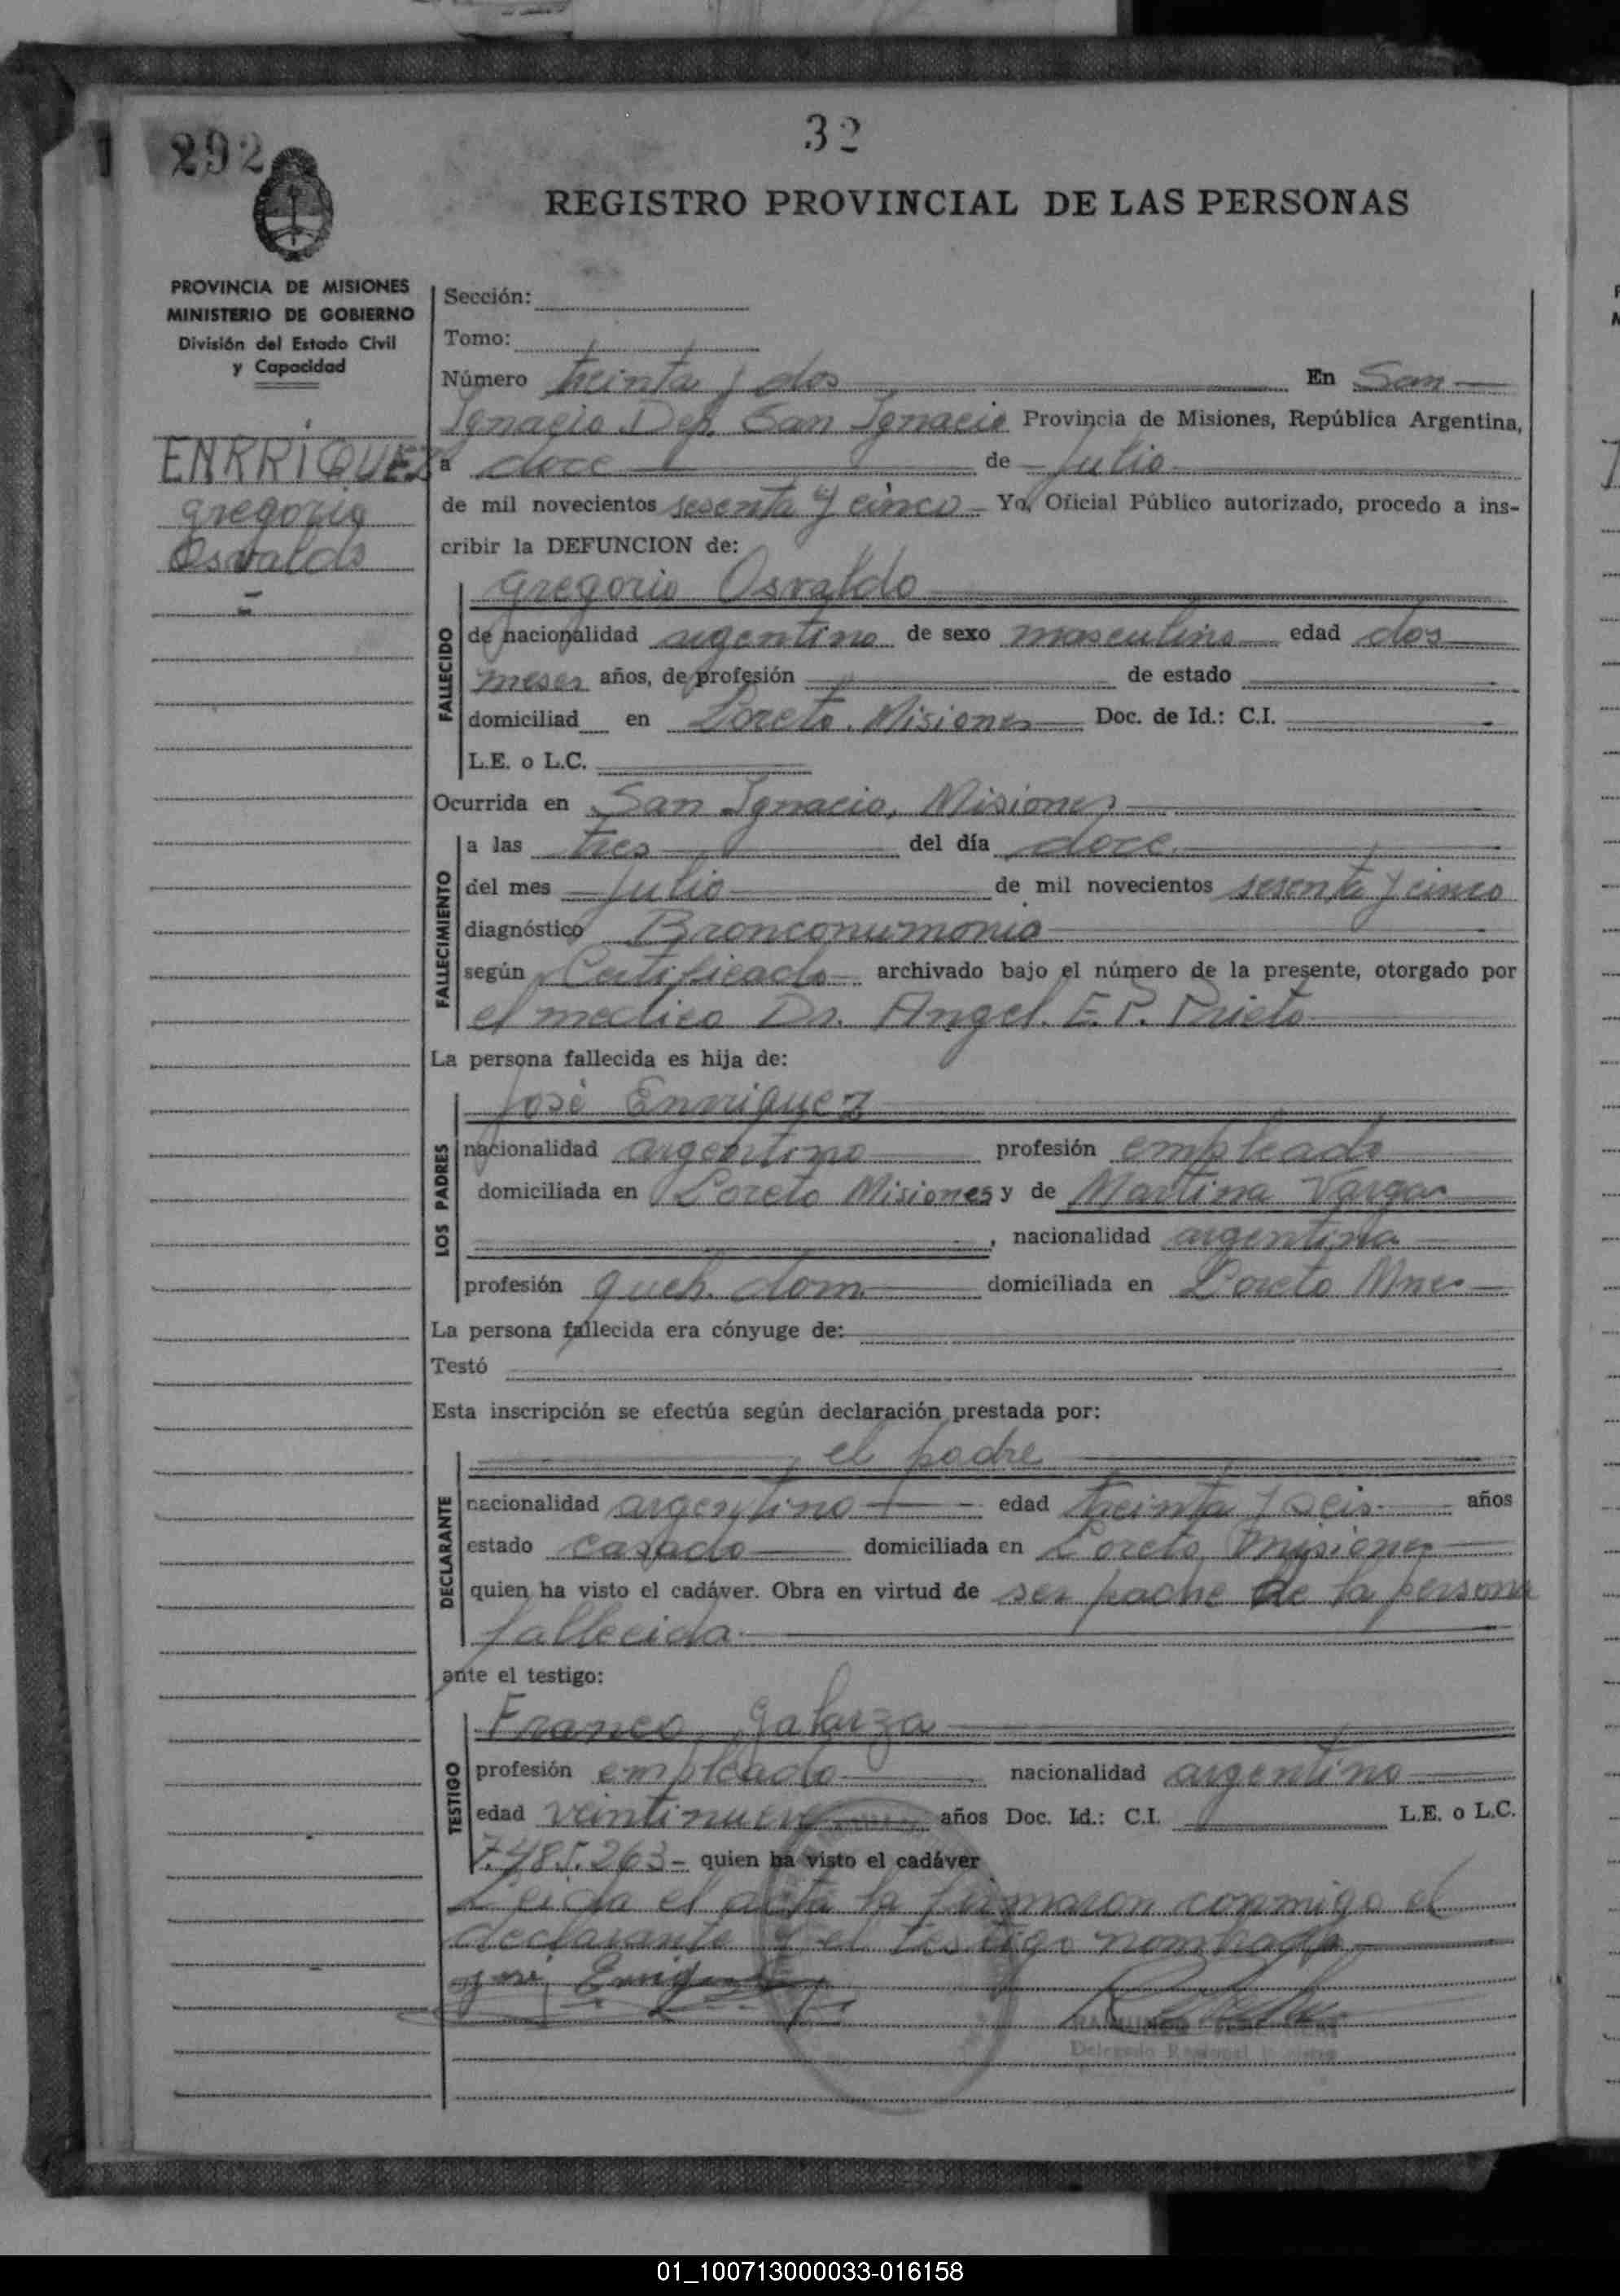 292
32
REGISTRO PROVINCIAL DE LAS PERSONAS
PROVINCIA DE MISIONES
MINISTERIO DE GOBIERNO
División del Estado Civil
y Capacidad
ENRRIQUEZ
Gregorio
Osvaldo
Sección:
Tomo:
Número treinta y dos En San
Ignacio Dep. San Ignacio Provincia de Misiones, República Argentina,
a doce de Julio
de mil novecientos sesenta y cinco Yo, Oficial Público autorizado, procedo a ins-
cribir la DEFUNCION de:
Gregorio Osvaldo
FALLECIDO
de nacionalidad argentino de sexo masculino edad dos
meses años, de profesión de estado
domiciliad en Loreto. Misiones Doc. de Id.: C.I.
L.E. o L.C.
Ocurrida en San Ignacio, Misiones
FALLECIMIENTO
a las tres del día doce
del mes Julio de mil novecientos sesenta y cinco
diagnóstico Bronconumonia
según Certificado archivado bajo el número de la presente, otorgado por
el medico Dr. Angel. E. P. Prieto
La persona fallecida es hija de:
LOS PADRES
José Enrriquez
nacionalidad argentino profesión empleado
domiciliada en Loreto Misiones y de Martina Vargas
, nacionalidad argentina
profesión queh. dom. domiciliada en Loreto Mnes
La persona fallecida era cónyuge de:
Testó
Esta inscripción se efectúa según declaración prestada por:
DECLARANTE
el padre
nacionalidad argentino edad treinta y seis años
estado casado domiciliada en Loreto Misiones
quien ha visto el cadáver. Obra en virtud de ser padre de la persona
fallecida
ante el testigo:
TESTIGO
Franco Galarza
profesión empleado nacionalidad argentino
edad veintinueve años Doc. Id.: C.I. L.E. o L.C.
7.485.263- quien ha visto el cadáver
Leida el acta la firmaron conmigo el
declarante y el testigo nombrado
José Enriquez
Delegado Regional
01_100713000033-016158